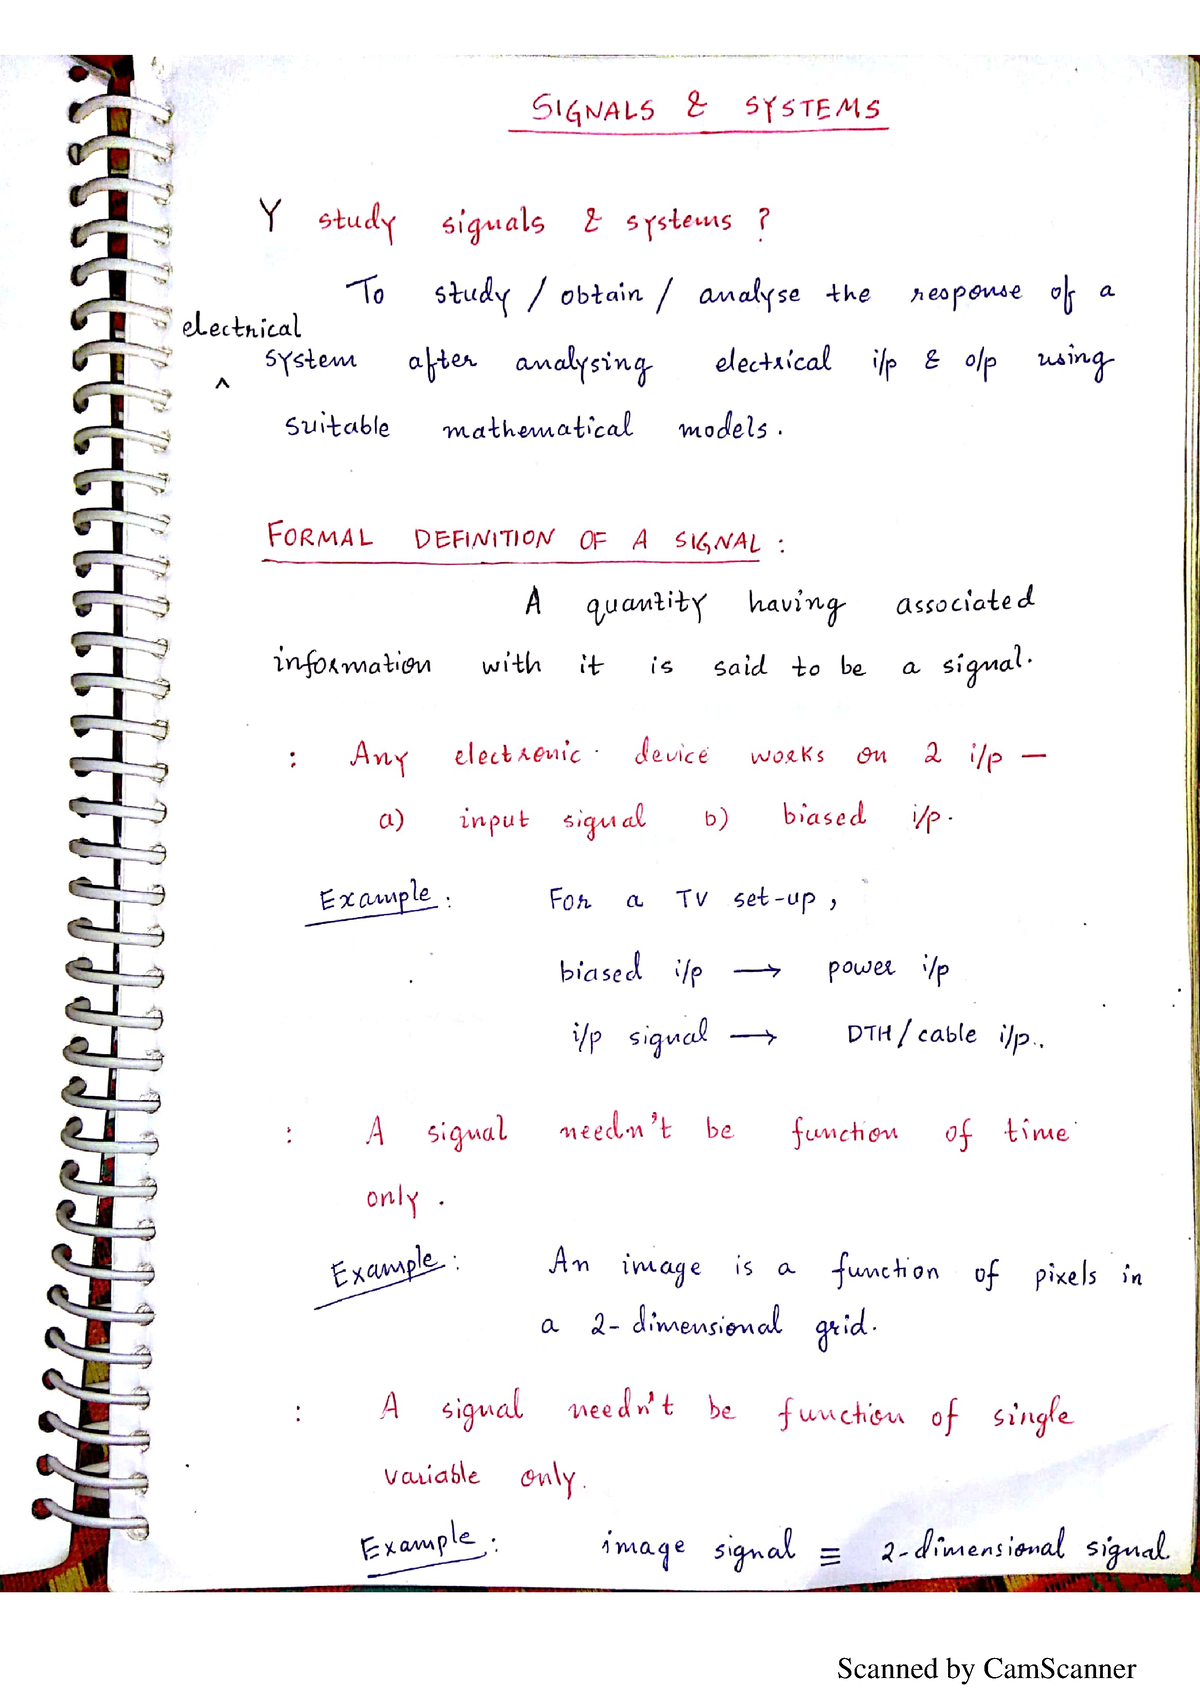 SIGNALS & SYSTEMS
Y study signals & systems ?
To study / obtain / analyse the response of a
electrical
system after analysing electrical i/p & o/p using
^
suitable mathematical models.
FORMAL DEFINITION OF A SIGNAL :
A quantity having associated
information with it is said to be a signal.
: Any electronic device works on 2 i/p —
a) input signal b) biased i/p.
Example : For a TV set-up ,
biased i/p → power i/p
i/p signal → DTH / cable i/p..
: A signal needn't be function of time
only .
Example : An image is a function of pixels in
a 2- dimensional grid.
: A signal needn't be function of single
variable only.
Example : image signal ≡ 2-dimensional signal
Scanned by CamScanner